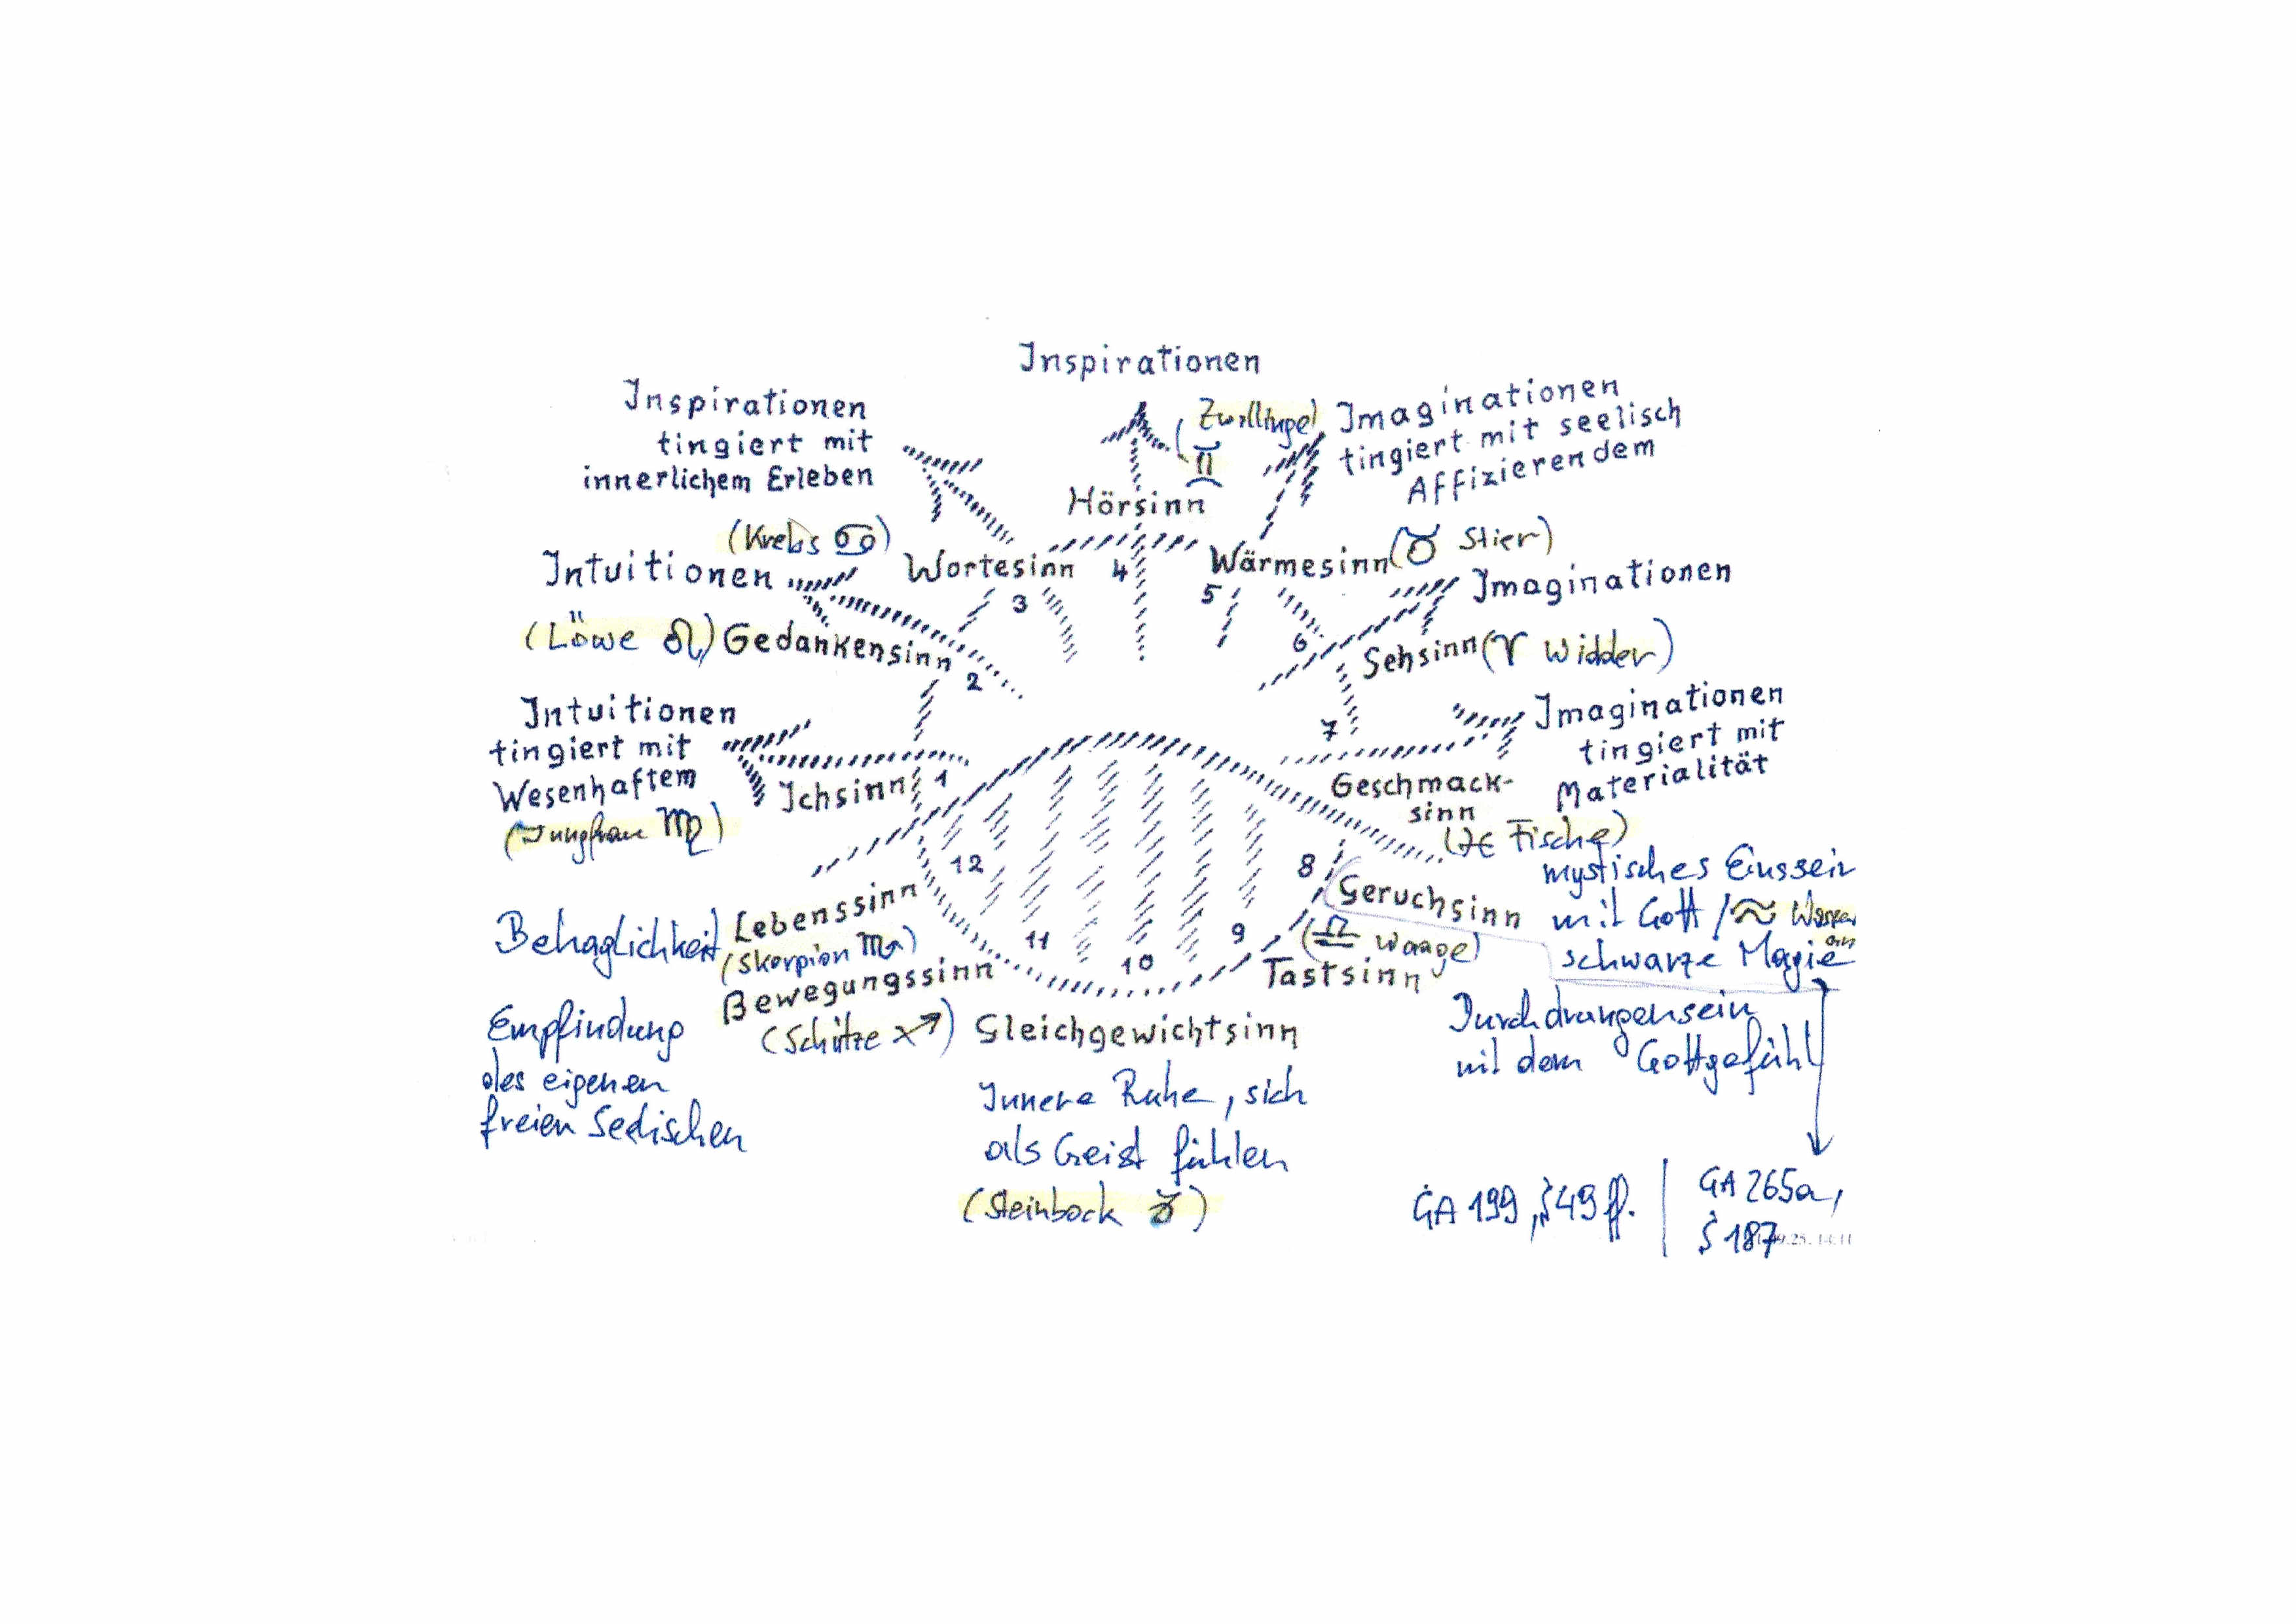 Inspirationen
Inspirationen
tingiert mit
innerlichem Erleben
(Zwillinge)
♊
Imaginationen
tingiert mit seelisch
Affizierendem
Hörsinn
(Krebs ♋)
Wortesinn
4
3
Wärmesinn (♉ Stier)
5
Intuitionen
Imaginationen
6
(Löwe ♌) Gedankensinn
2
Sehsinn (♈ Widder)
Intuitionen
tingiert mit
Wesenhaftem
(Jungfrau ♍)
Ichsinn 1
7
Imaginationen
tingiert mit
Materialität
Geschmack-
sinn
(♓ Fische)
12
8
Geruchsinn
mystisches Einssein
mit Gott / ♒ Wasser
mann
schwarze Magie
Behaglichkeit
Lebenssinn
(Skorpion ♏)
11
10
9
(♎ Waage)
Tastsinn
Durchdrungensein
mit dem Gottgefühl
Bewegungssinn
(Schütze ♐)
Empfindung
des eigenen
freien Seelischen
Gleichgewichtsinn
Innere Ruhe, sich
als Geist fühlen
(Steinbock ♑)
GA 199, S 49 ff.
GA 265a,
S 187